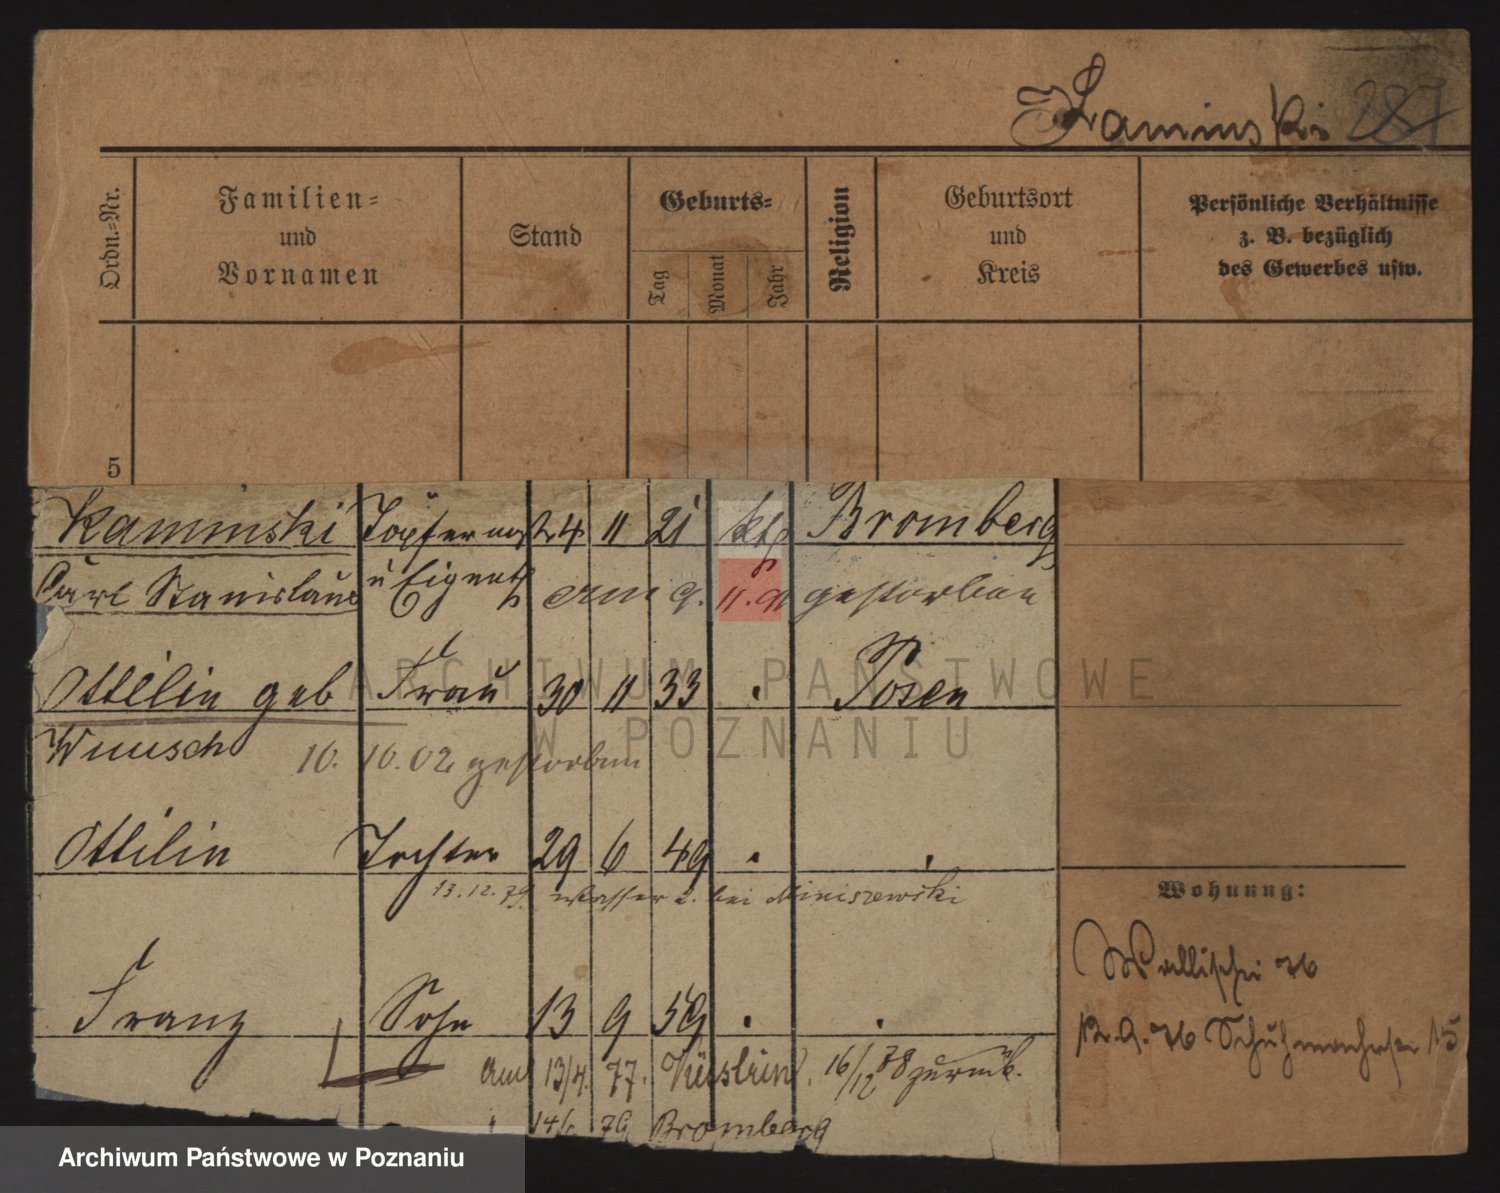 Kaminski 287
Ordn.-Nr.
Familien-
und
Vornamen
Stand
Geburts-
Tag
Monat
Jahr
Religion
Geburtsort
und
Kreis
Persönliche Verhältnisse
z. B. bezüglich
des Gewerbes usw.
5
Kaminski Töpfermstr 4 11 21 kth Bromberg
Carl Stanislaus u Eigenth am 9. 11. 91 gestorben
Ottilie geb Frau 30 11 33 . Posen
Wunsch 10. 10. 02 gestorben
Ottilie Tochter 29 6 49 . .
13.12.79. Wasser 2. bei Miniszewski
Franz Sohn 13 9 59 . .
am 13/4. 77. Küstrin. 16/12 78 zurück.
" 79 Bromberg
Wohnung:
Wallischei 76
12.9.76 Schuhmacherstr 15
ARCHIWUM PAŃSTWOWE
W POZNANIU
Archiwum Państwowe w Poznaniu